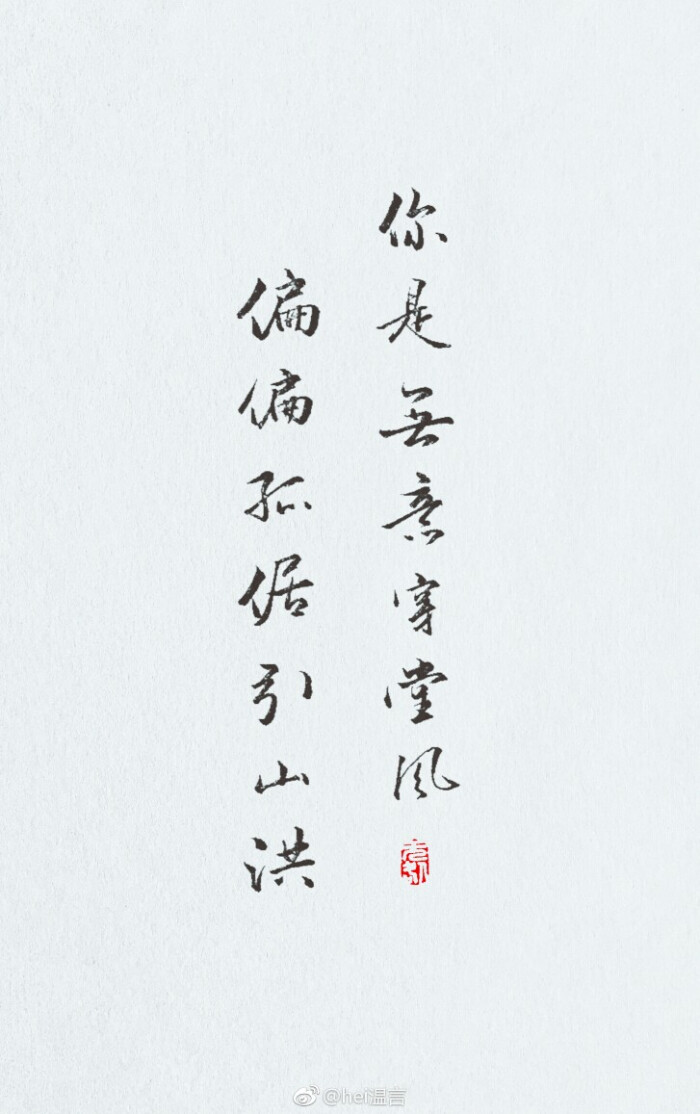 你是无意穿堂风
偏偏孤倨引山洪
@hei温言